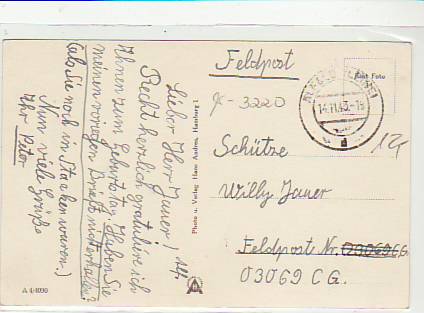 Lieber Herr Jauer!
Recht herzlich gratuliere ich
Ihnen zum Geburtstag. Haben Sie
meinen vorigen Brief nicht erhalten?
(als Sie noch in Staaken waren.)
Nun viele Grüße
Ihr Peter
A 4/4090
Photo u. Verlag Hans Andres, Hamburg 1
Feldpost
14.11.43.-18
Echt Foto
Schütze
Willy Jauer
Feldpost Nr. 03069 C G.
03069 C G.